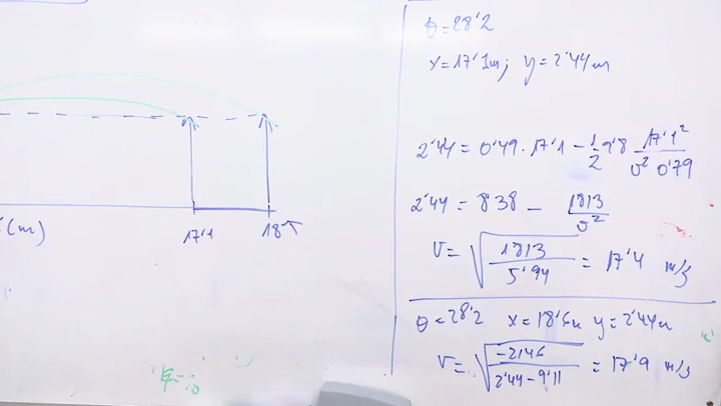 θ=28'2
x=17'1m; y=2'44m
2'44 = 0'49·17'1 - 1/2 9'8 17'1²/v² 0'79
2'44 = 8'38 - 1813/v²
V= √1813/5'94 = 17'4 m/s
θ=28'2 x=18'5m y=2'44m
V= √-2146/2'44-9'11 = 17'9 m/s
(m)
17'1